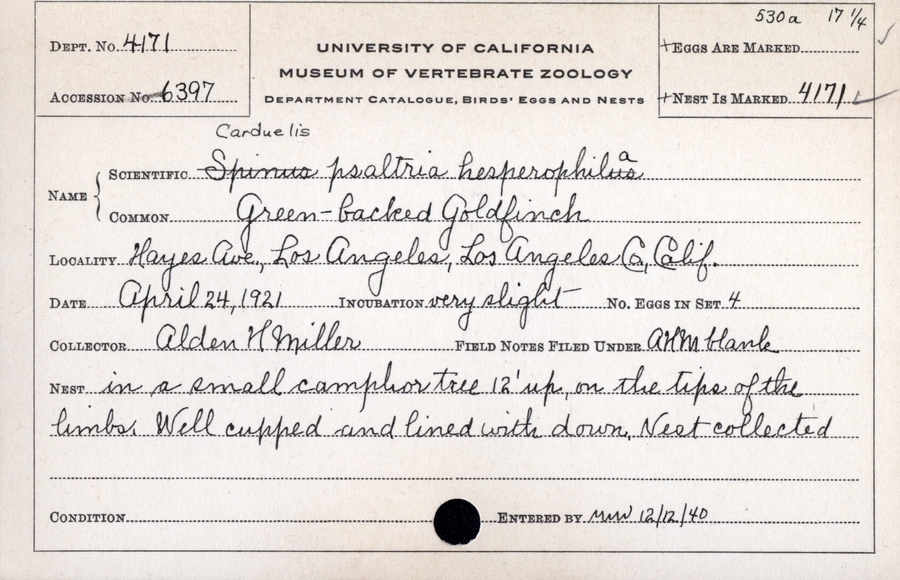 530a 17 1/4
DEPT. No. 4171
UNIVERSITY OF CALIFORNIA
MUSEUM OF VERTEBRATE ZOOLOGY
DEPARTMENT CATALOGUE, BIRDS' EGGS AND NESTS
+EGGS ARE MARKED
ACCESSION No. 6397
+NEST IS MARKED 4171 ✓
Carduelis
NAME { SCIENTIFIC Spinus psaltria hesperophilus a
COMMON Green-backed Goldfinch
LOCALITY Hayes Ave., Los Angeles, Los Angeles Co, Calif.
DATE April 24, 1921 INCUBATION very slight No. EGGS IN SET 4
COLLECTOR Alden H Miller FIELD NOTES FILED UNDER AHM blank
NEST in a small camphor tree 12' up, on the tips of the
limbs. Well cupped and lined with down. Nest collected
CONDITION ENTERED BY mw 12/12/40